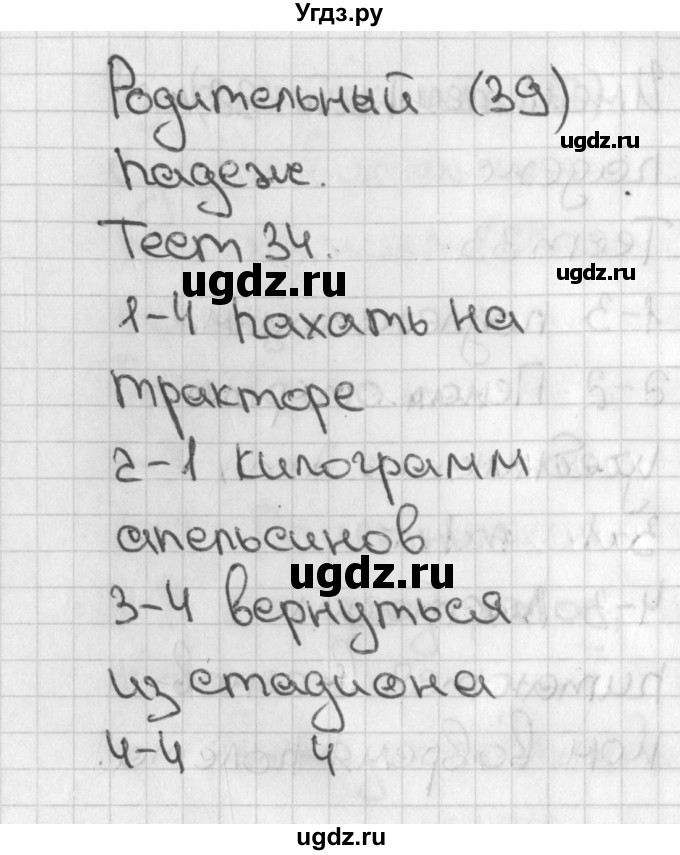 Угдз.ру
Родительный (39)
ugdz.ru
падеж.
Тест 34.
ugdz.ru
ugdz.ru
1-4 пахать на
тракторе
2-1 килограмм
апельсинов
ugdz.ru
3-4 вернуться
из стадиона
4-4 4
ugdz.ru